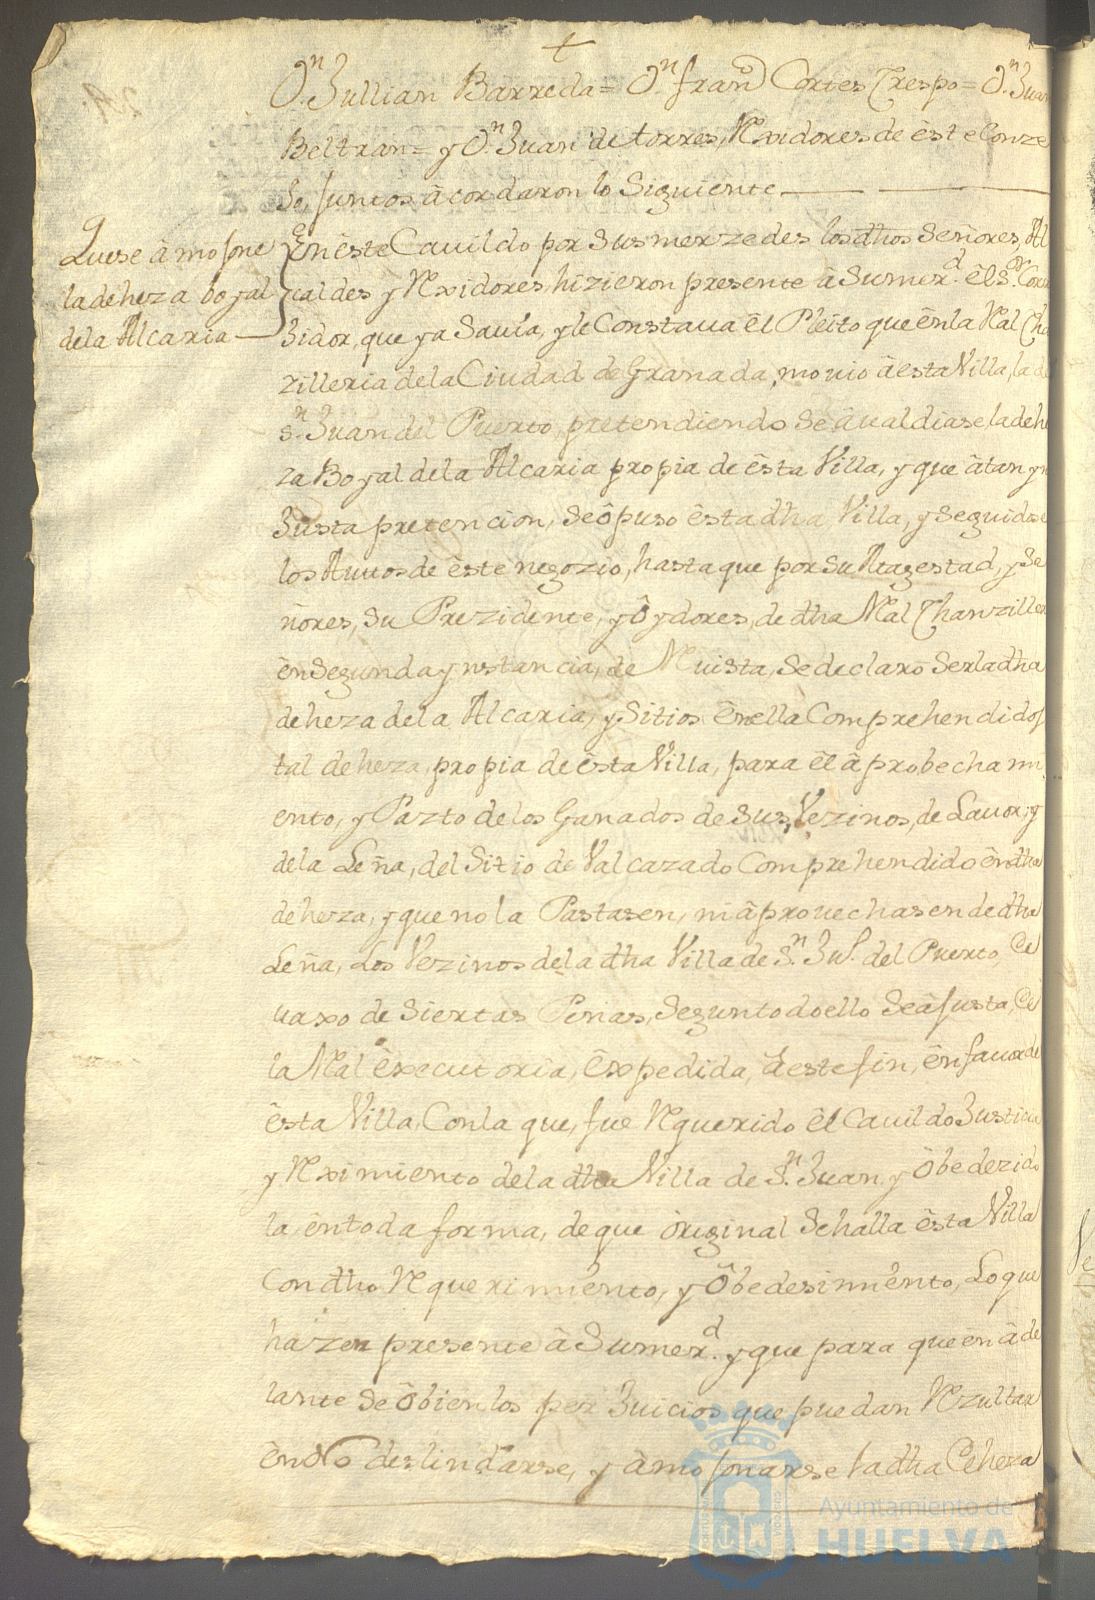 +
Dn. Jullian Barreda= Dn. franco Cortes Crespo= Dn. Juan
Beltran= y Dn. Juan de torres, Rexidores de èste Conze
Jo, Juntos àcordaron lo Siguiente
Quese àmojone
la deheza boyal
dela Alcaria
Enèste Cauildo por Susmerzedes los dhos Señores, Al
caldes y Rexidores, hizieron presente à Sumerd. êl Sor. Corre
Jidor, que ya Sauia, y le Constaua êl Pleito que ênla Ral Cha
zilleria dela Ciudad de Granada, mouio àesta Villa, la de
Sn. Juan del Puerto, pretendiendo Se âualdiase ladehe
za Boyal dela Alcaria propia de èsta Villa, y que àtan yn
Justa pretencion, Se ôpuso èsta dha Villa, y Seguidose
los Autos de èste negozio, hasta que por Su Magestad, y Se
ñores, Su Prezidente, y Ôydores, de dha Ral Chanziller
ên Segunda ynstancia, de Reuista, Se declarô Ser la dha
deheza dela Alcaria, y Sitios ênella Comprehendidos
tal deheza, propia de èsta Villa, para êl àprobechami
ento, y Pazto de los Ganados de Sus Vezinos, de Lauor, y
dela Leña, del Sitio de Valcazado Comprehendido ên dha
deheza, y que no la Pastasen, ni âprouechasen de dha
Leña, Los Vezinos dela dha Villa de Sn. Jun. del Puerto De
uaxo de Siertas Penas, Segun todo ello Se àjusta, De
la Ral èxecutoria, Êxpedida, à este fin, ên fauor de
èsta Villa, Conla que, fue Requerido êl Cauildo Justicia
y Reximiento dela dha Villa de Sn. Juan y Ôbedezido
la, êntoda forma, de que òriginal Sehalla èsta Villa
Con dho Requerimiênto, y Ôbedesimiênto, Lo que
hazen presente à Sumerd. y que para que ên àde
lante Se Ôbien los perJuicios que puedan Rezultar
ên No deslindarse, y àmojonarse la dha Deheza
Ayuntamiento de
HUELVA